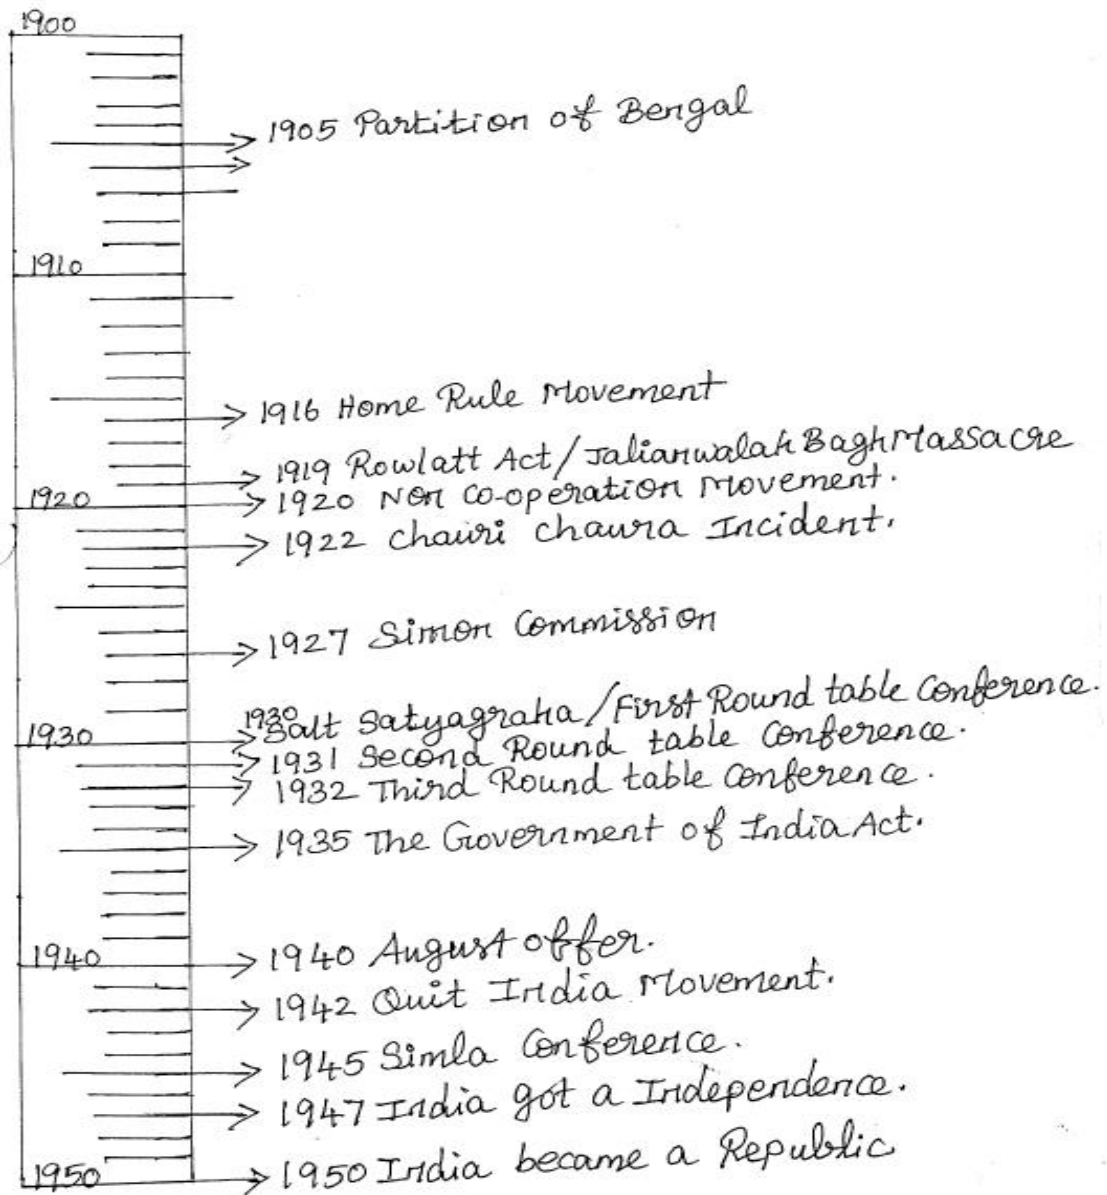 1900
1905 Partition of Bengal
1910
1916 Home Rule Movement
1919 Rowlatt Act/Jalianwalah Bagh Massacre
1920
1920 Non Co-operation Movement.
1922 Chauri Chaura Incident.
1927 Simon Commission
1930
1930 Salt Satyagraha/First Round table Conference.
1931 Second Round table Conference.
1932 Third Round table Conference.
1935 The Government of India Act.
1940
1940 August offer.
1942 Quit India Movement.
1945 Simla Conference.
1947 India got a Independence.
1950
1950 India became a Republic